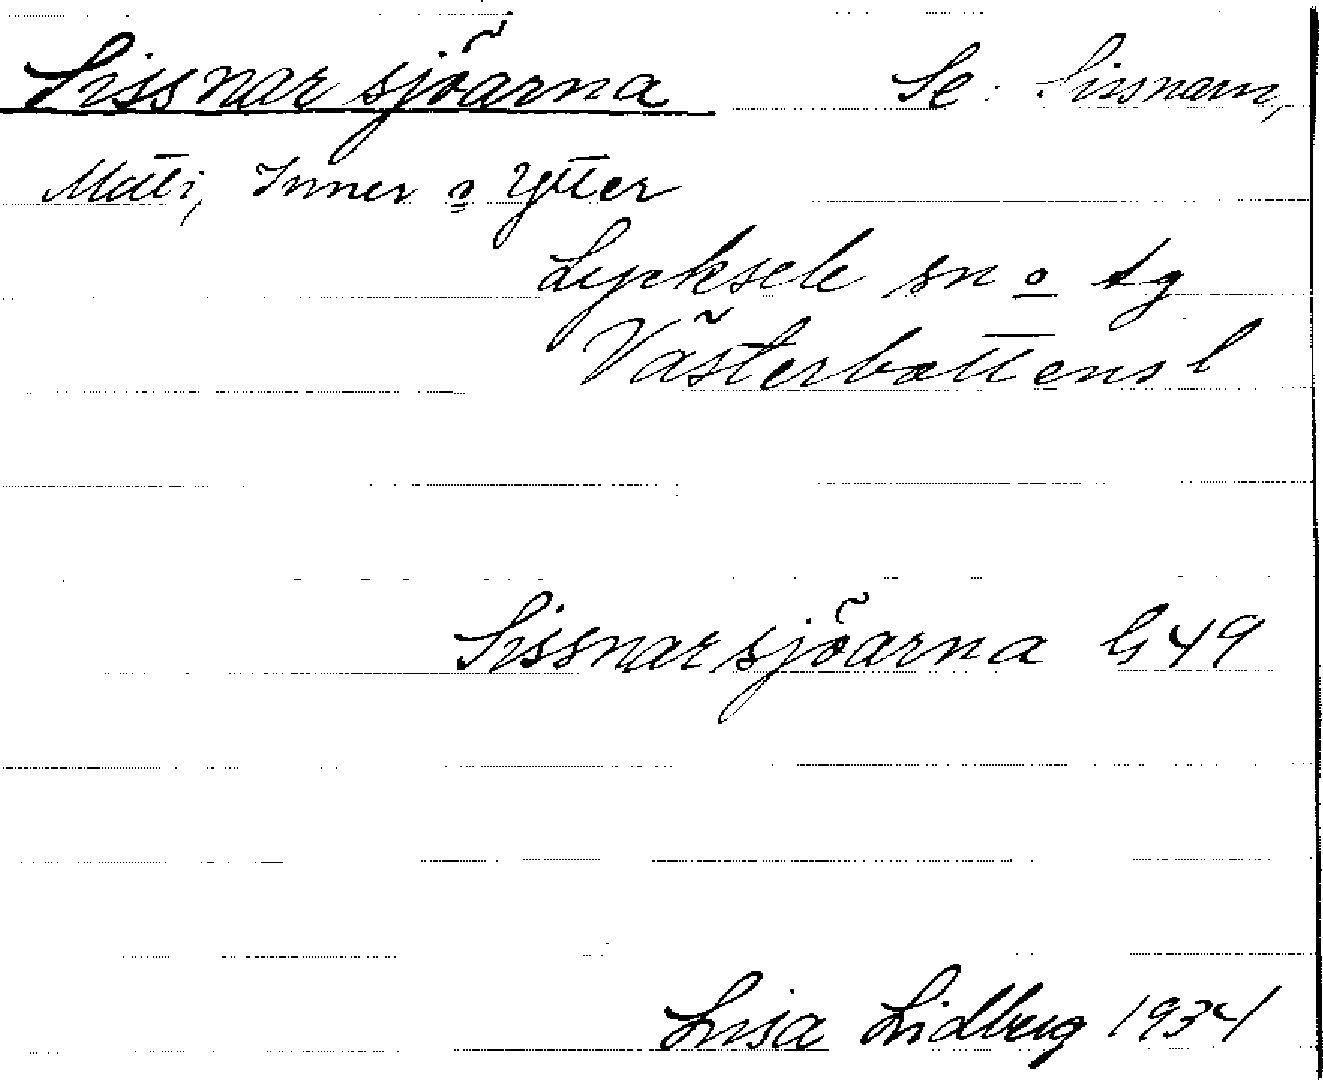 Sissnarsjöarna Se: Sissnarn,
Matti, Inner o Ytter
Lycksele sn o tg
Västerbottens l
Sissnarsjöarna G 49
Lisa Lidberg 1934